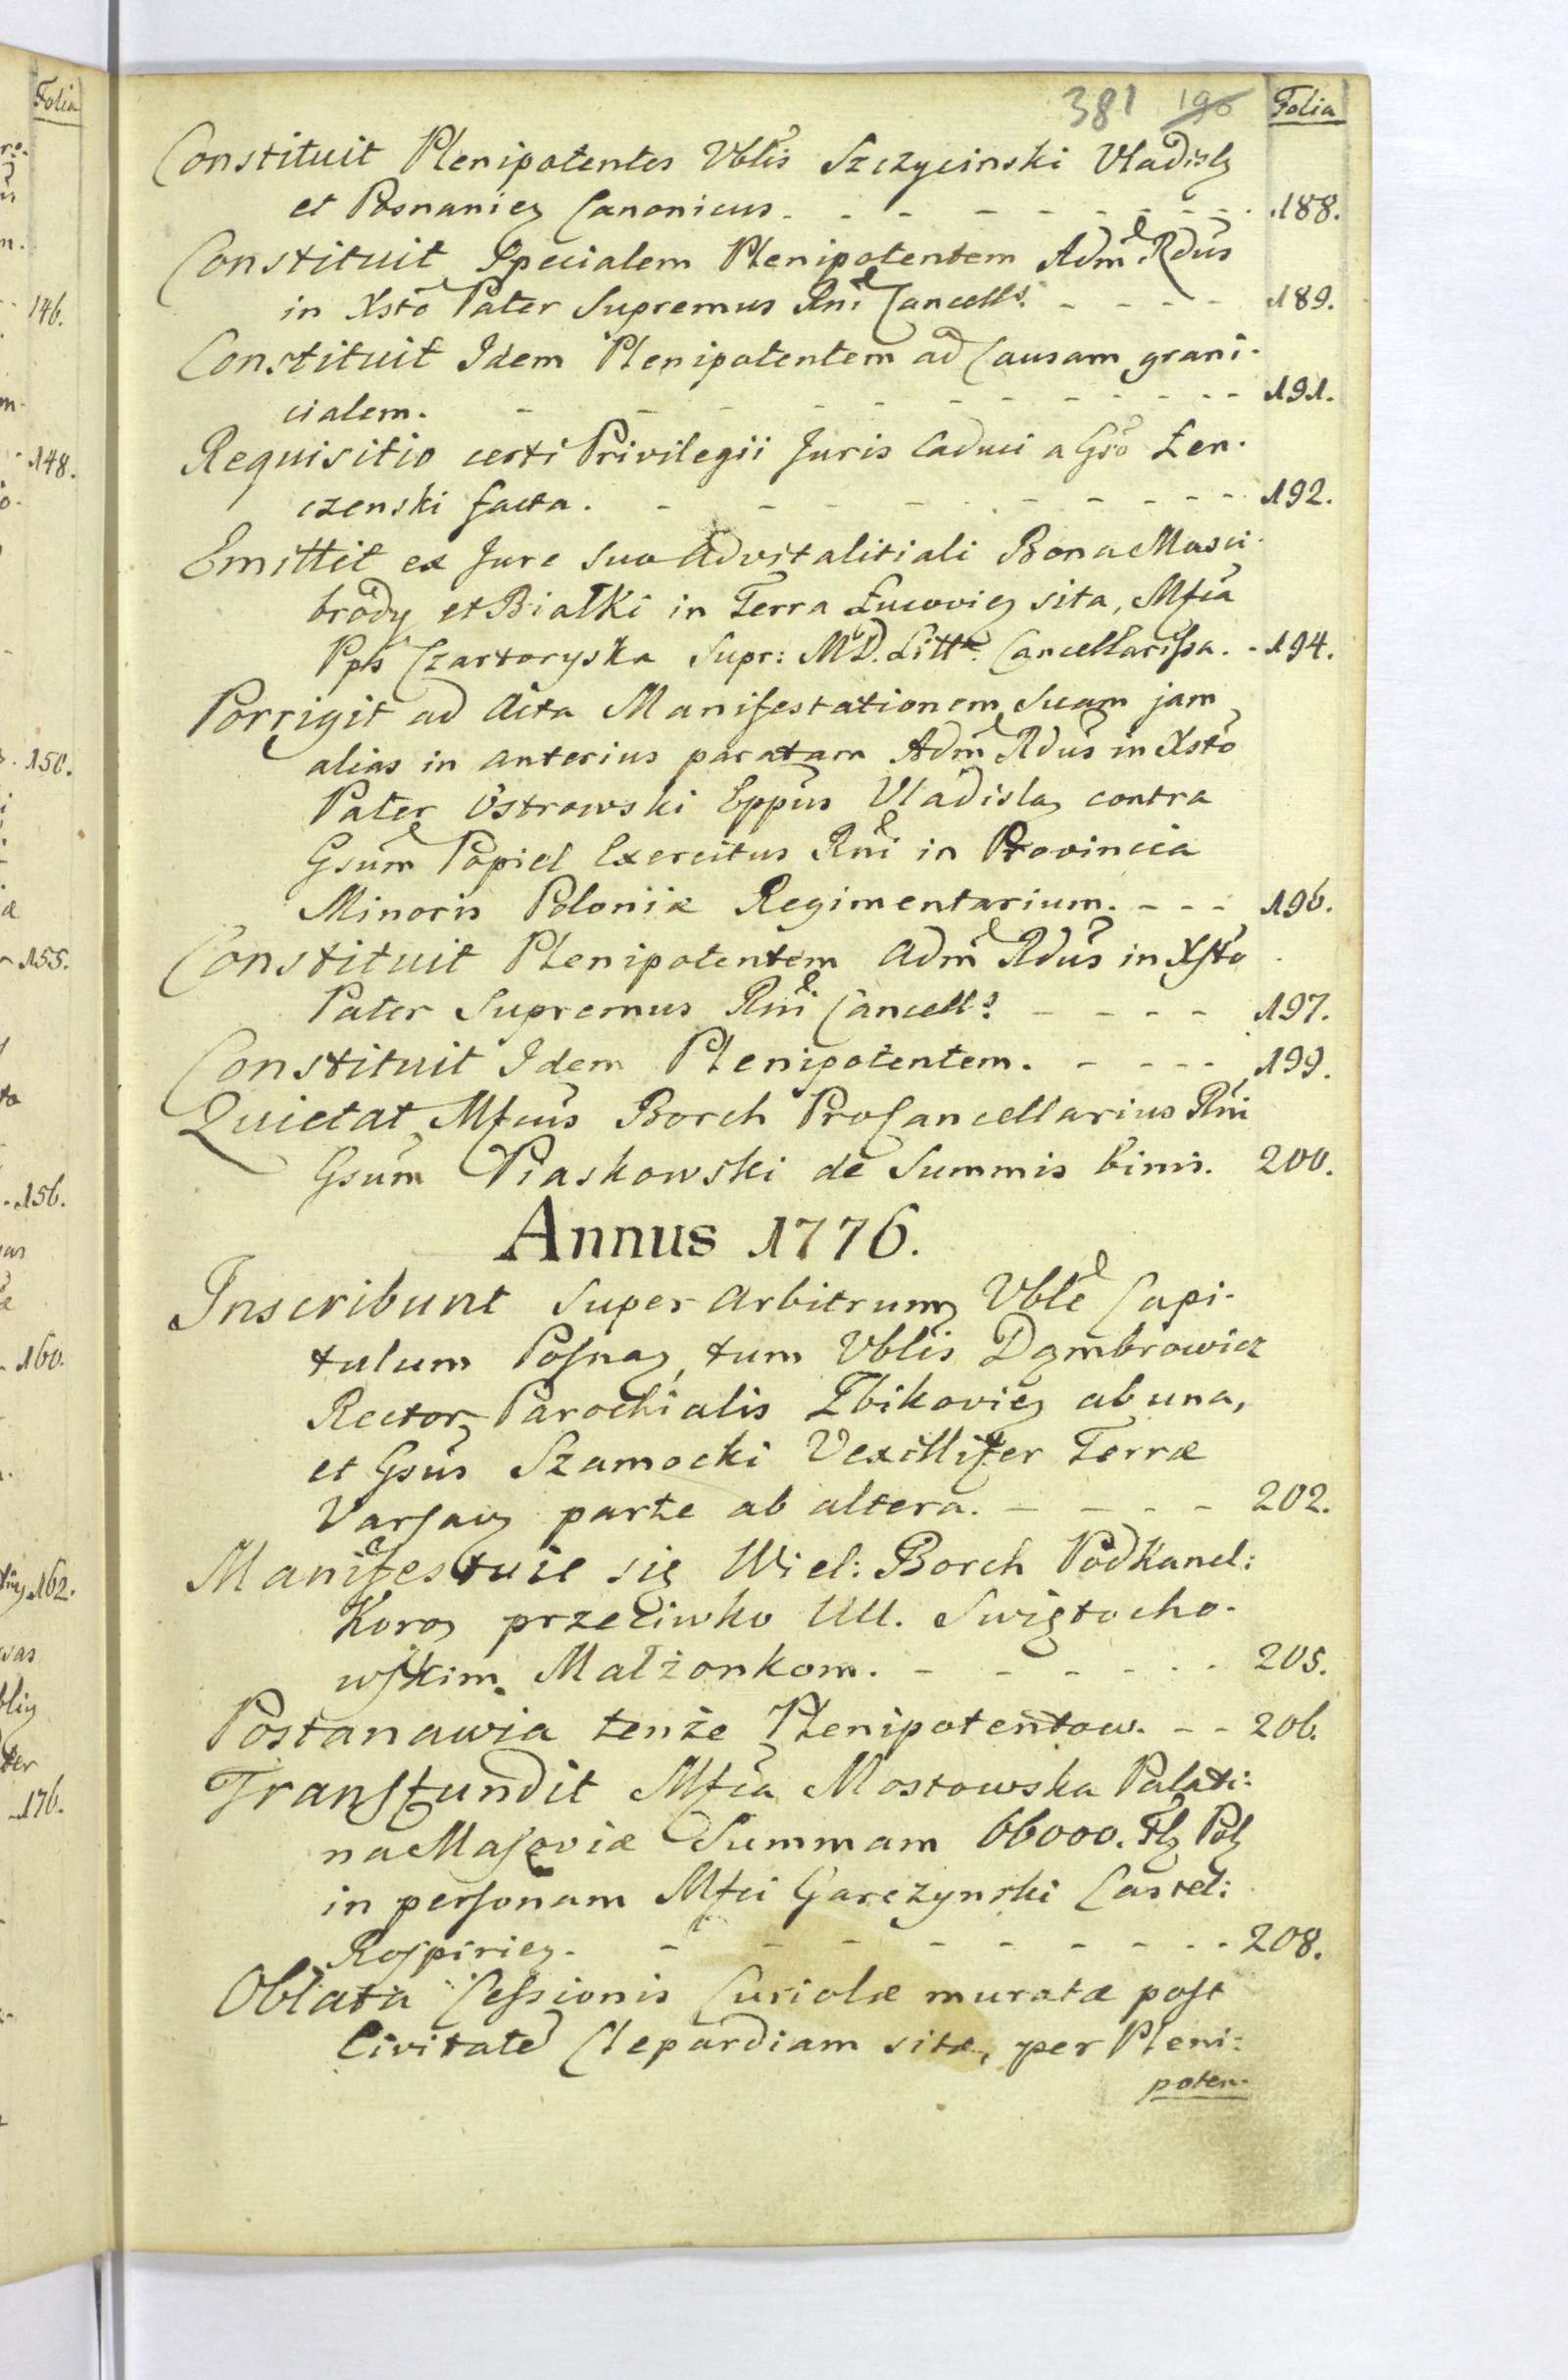 381 196 Folia
Constituit Plenipotentes Vblis Szczycinski Vladisl
et Posnanien Canonicus. - - - - - - - - 188.
Constituit Specialem Plenipotentem Adm Rdus
in Xsto Pater Supremus Rni Cancells. - - - - 189.
Constituit Idem Plenipotentem ad Causam grani-
cialem. - - - - - - - - - - 191.
Requisitio certi Privilegii Juris Caduci a Gso Łen-
czenski facta. - - - - - - - - 192.
Emittit ex Jure suo Advitalitiali Bona Masci-
brody et Białki in Terra Łucovien sita, Mfca
Pps Czartoryska Supr: M D. Litt. Cancellarissa. - 194.
Porrigit ad Acta Manifestationem Suam jam
alias in anterius paratam Adm Rdus in Xsto
Pater Ostrowski Eppus Vladislav contra
Gsum Popiel Exercitus Rni in Provincia
Minoris Poloniæ Regimentarium. - - - 196.
Constituit Plenipotentem Adm Rdus in Xsto
Pater Supremus Rni Cancells - - - - 197.
Constituit Idem Plenipotentem. - - - - 199.
Quietat Mfcus Borch ProCancellarius Rni
Gsum Piaskowski de Summis binis. 200.
Annus 1776.
Inscribunt Super Arbitrum Vble Capi-
tulum Posnan, tum Vblis Dąmbrowicz
Rector Parochialis Zbikovien ab una,
et Gsus Szamocki Vexillifer Terræ
Varsav parte ab altera. - - - - 202.
Manifestuie się Wiel: Borch Podkancl:
Koron przeciwko UU. Swiętocho-
wskim Małżonkom. - - - - - - 205.
Postanawia tenże Plenipotentow. - - 206.
Transfundit Mfca Mostowska Palati:
na Masoviæ Summam 66000. Fl Pol
in personam Mfci Garczynski Castel:
Rospirien. - - - - - - - - 208.
Oblata Cessionis Curiolæ muratæ post
Civitate Clepardiam sitæ, per Pleni:
poten-
Folia
146.
148.
150.
155.
156.
160.
162.
176.